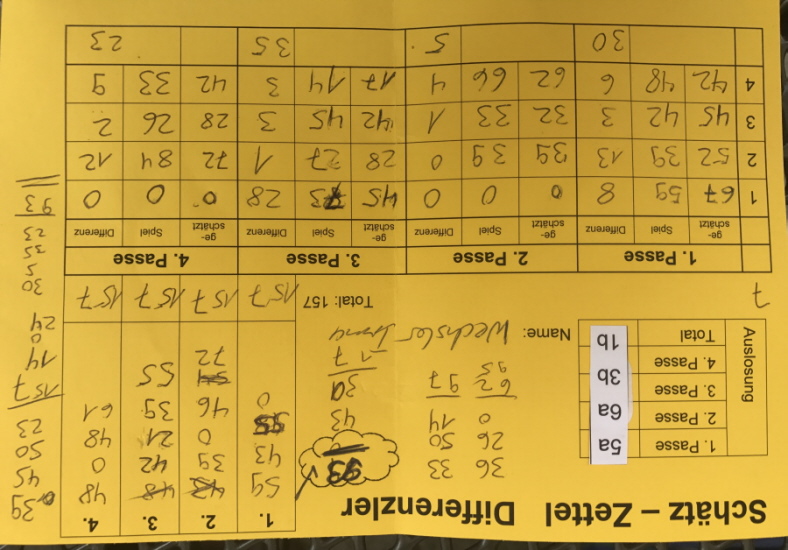 Schätz – Zettel Differenzler
Auslosung
1. Passe 5a
2. Passe 6a
3. Passe 3b
4. Passe 1b
Total
36 33
26 50
0 14
62 97
95
93
43
30
7
Name: Wechsler Irma
Total: 157
1. 2. 3. 4.
59 43 48 48
43 39 42 0
0 21 48
0 46 39 61
72 55
157 157 157 157
39
45
50
23
157
14
0
24
7
1. Passe 2. Passe 3. Passe 4. Passe
ge-schätzt Spiel Differenz ge-schätzt Spiel Differenz ge-schätzt Spiel Differenz ge-schätzt Spiel Differenz
1 67 59 8 0 0 0 45 73 28 0 0 0
2 52 39 13 39 39 0 28 27 1 72 84 12
3 45 42 3 32 33 1 42 45 3 28 26 2
4 42 48 6 62 66 4 17 14 3 42 33 9
30 5 35 23
30
5
35
23
93